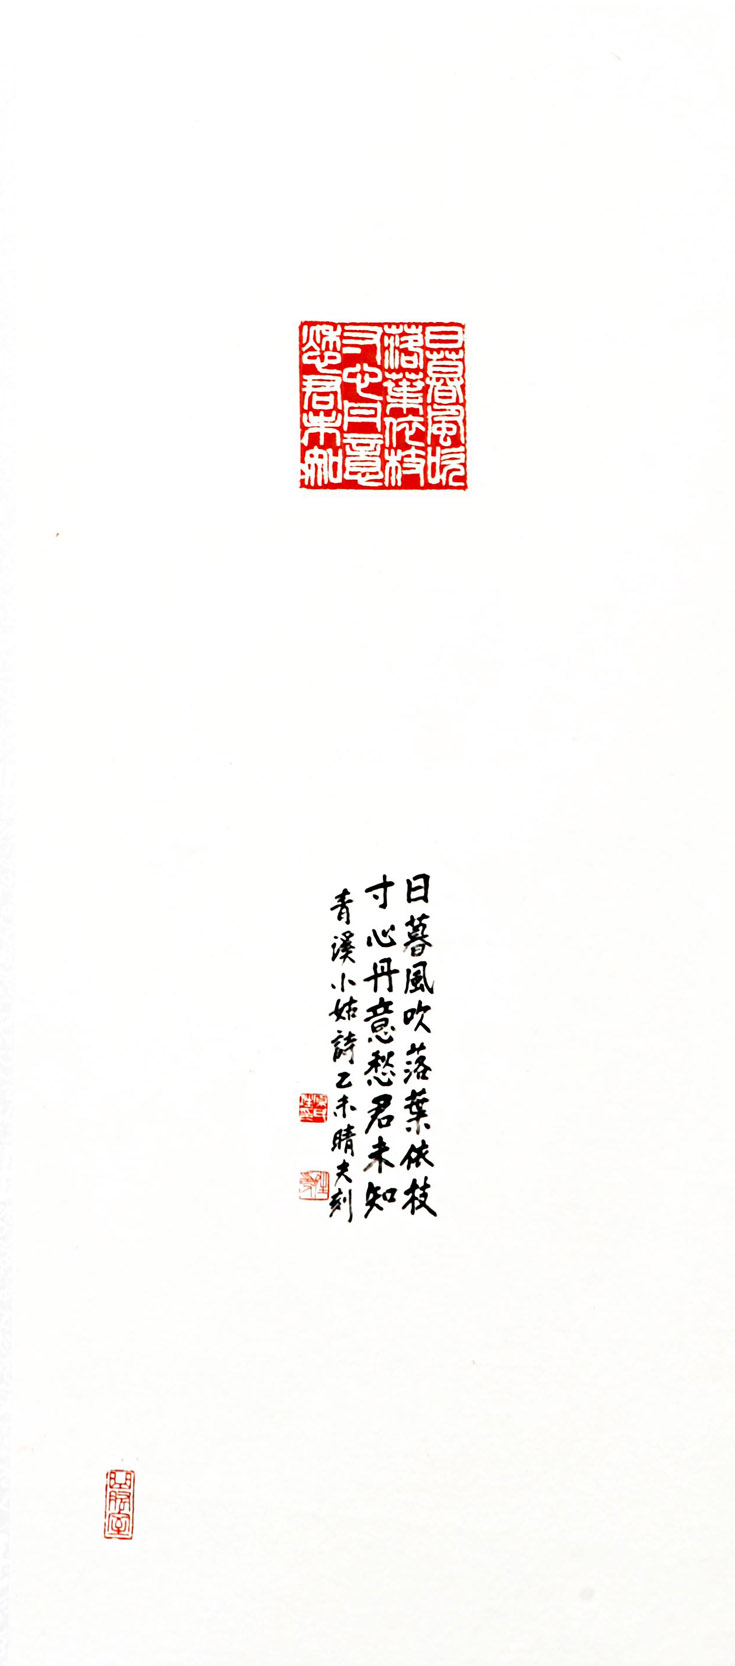 日暮風吹
落葉依枝
寸心丹意
愁君未知
日暮風吹落葉依枝
寸心丹意愁君未知
青溪小姑詩乙未晴夫刻